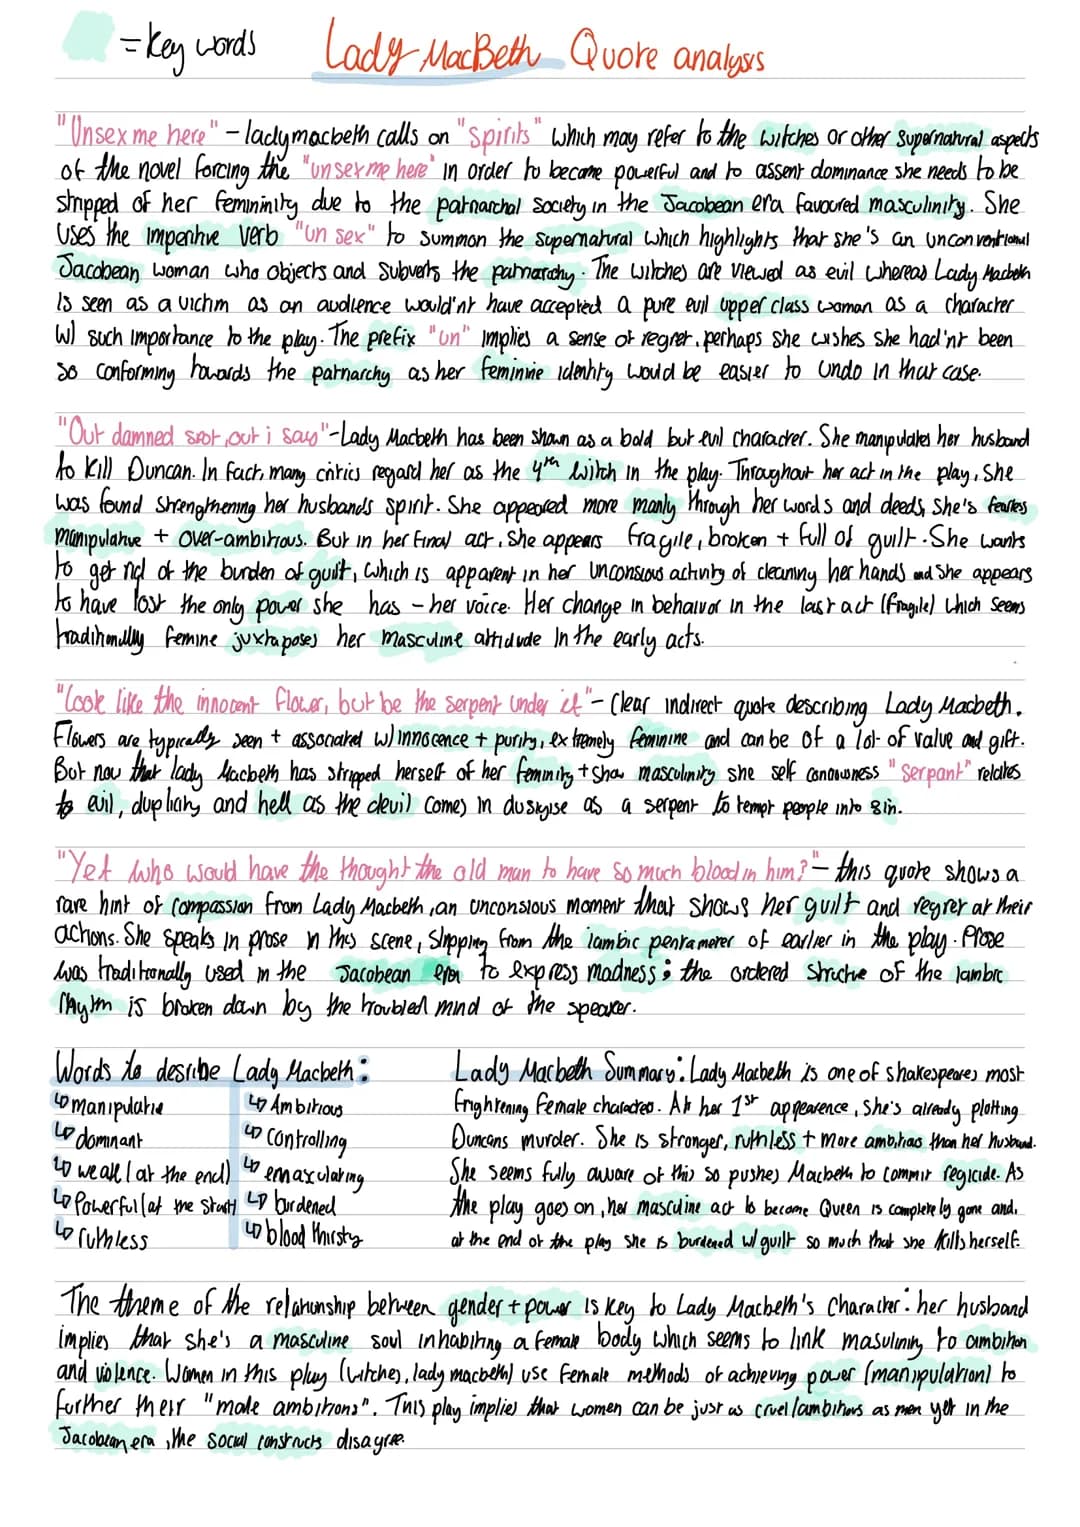 = key words Lady MacBeth Quote analysis
"Unsex me here" - lady macbeth calls on "spirits" which may refer to the witches or other supernatural aspects
of the novel forcing the "unsex me here" in order to become powerful and to assent dominance she needs to be
stripped of her femininity due to the patriarchal society in the Jacobean era favoured masculinity. She
uses the imperitive verb "un sex" to summon the supernatural which highlights that she's an unconventional
Jacobean woman who objects and subverts the patriarchy. The witches are viewed as evil whereas Lady Macbeth
is seen as a victim as an audience would'nt have accepted a pure evil upper class woman as a character
w/ such importance to the play. The prefix "un" implies a sense of regret, perhaps she wishes she had'nt been
so conforming towards the patriarchy as her feminine identity would be easier to undo in that case.
"Out damned spot, out i say" - Lady Macbeth has been shown as a bold but evil character. She manipulates her husband
to kill Duncan. In fact, many critics regard her as the 4th witch in the play. Throughout her act in the play, she
was found strengthening her husbands spirit. She appeared more manly through her words and deeds, she's fearless
manipulative + over-ambitious. But in her final act, she appears fragile, broken + full of guilt. She wants
to get rid of the burden of guilt, which is apparent in her unconsious activity of cleaning her hands and she appears
to have lost the only power she has - her voice. Her change in behaivor in the last act (fragile) which seems
traditionally femine juxtaposes her masculine attidude in the early acts.
"Look like the innocent flower, but be the serpent under it" - Clear indirect quote describing Lady Macbeth.
Flowers are typically seen + associated w/ innocence + purity, extremely feminine and can be of a lot of value and gift.
But now that lady Macbeth has stripped herself of her feminity + show masculinity she self "serpant" relates
to evil, duplicity and hell as the devil comes in dusigise as a serpent to tempt people into sin.
"Yet who would have the thought the old man to have so much blood in him?" - this quote shows a
rare hint of compassion from Lady Macbeth, an unconsious moment that shows her guilt and regret at their
actions. She speaks in prose in this scene, slipping from the iambic pentameter of earlier in the play. Prose
was traditionally used in the Jacobean era to express madness: the ordered structure of the iambic
rhytm is broken down by the troubled mind of the speaker.
Words to desribe Lady Macbeth:
↳ manipulative ↳ Ambitious
↳ dominant ↳ controlling
↳ weak (at the end) ↳ emasculating
↳ Powerful (at the start) ↳ burdened
↳ ruthless ↳ blood thirsty
Lady Macbeth Summary: Lady Macbeth is one of shakespeares most
frightening female characters. At her 1st appearence, she's already plotting
Duncans murder. She is stronger, ruthless + more ambitious than her husband.
She seems fully aware of this so pushes Macbeth to commit regicide. As
the play goes on, her masculine act to become Queen is completely gone and,
at the end of the play she is burdened w/ guilt so much that she kills herself.
The theme of the relationship between gender + power is key to Lady Macbeth's character: her husband
implies that she's a masculine soul inhabiting a female body which seems to link masulinity to ambition
and violence. Women in this play (witches, lady macbeth) use female methods of achieving power (manipulation) to
further their "male ambitions". This play implies that women can be just as cruel/ambitious as men yet in the
Jacobean era, the social constructs disagree.